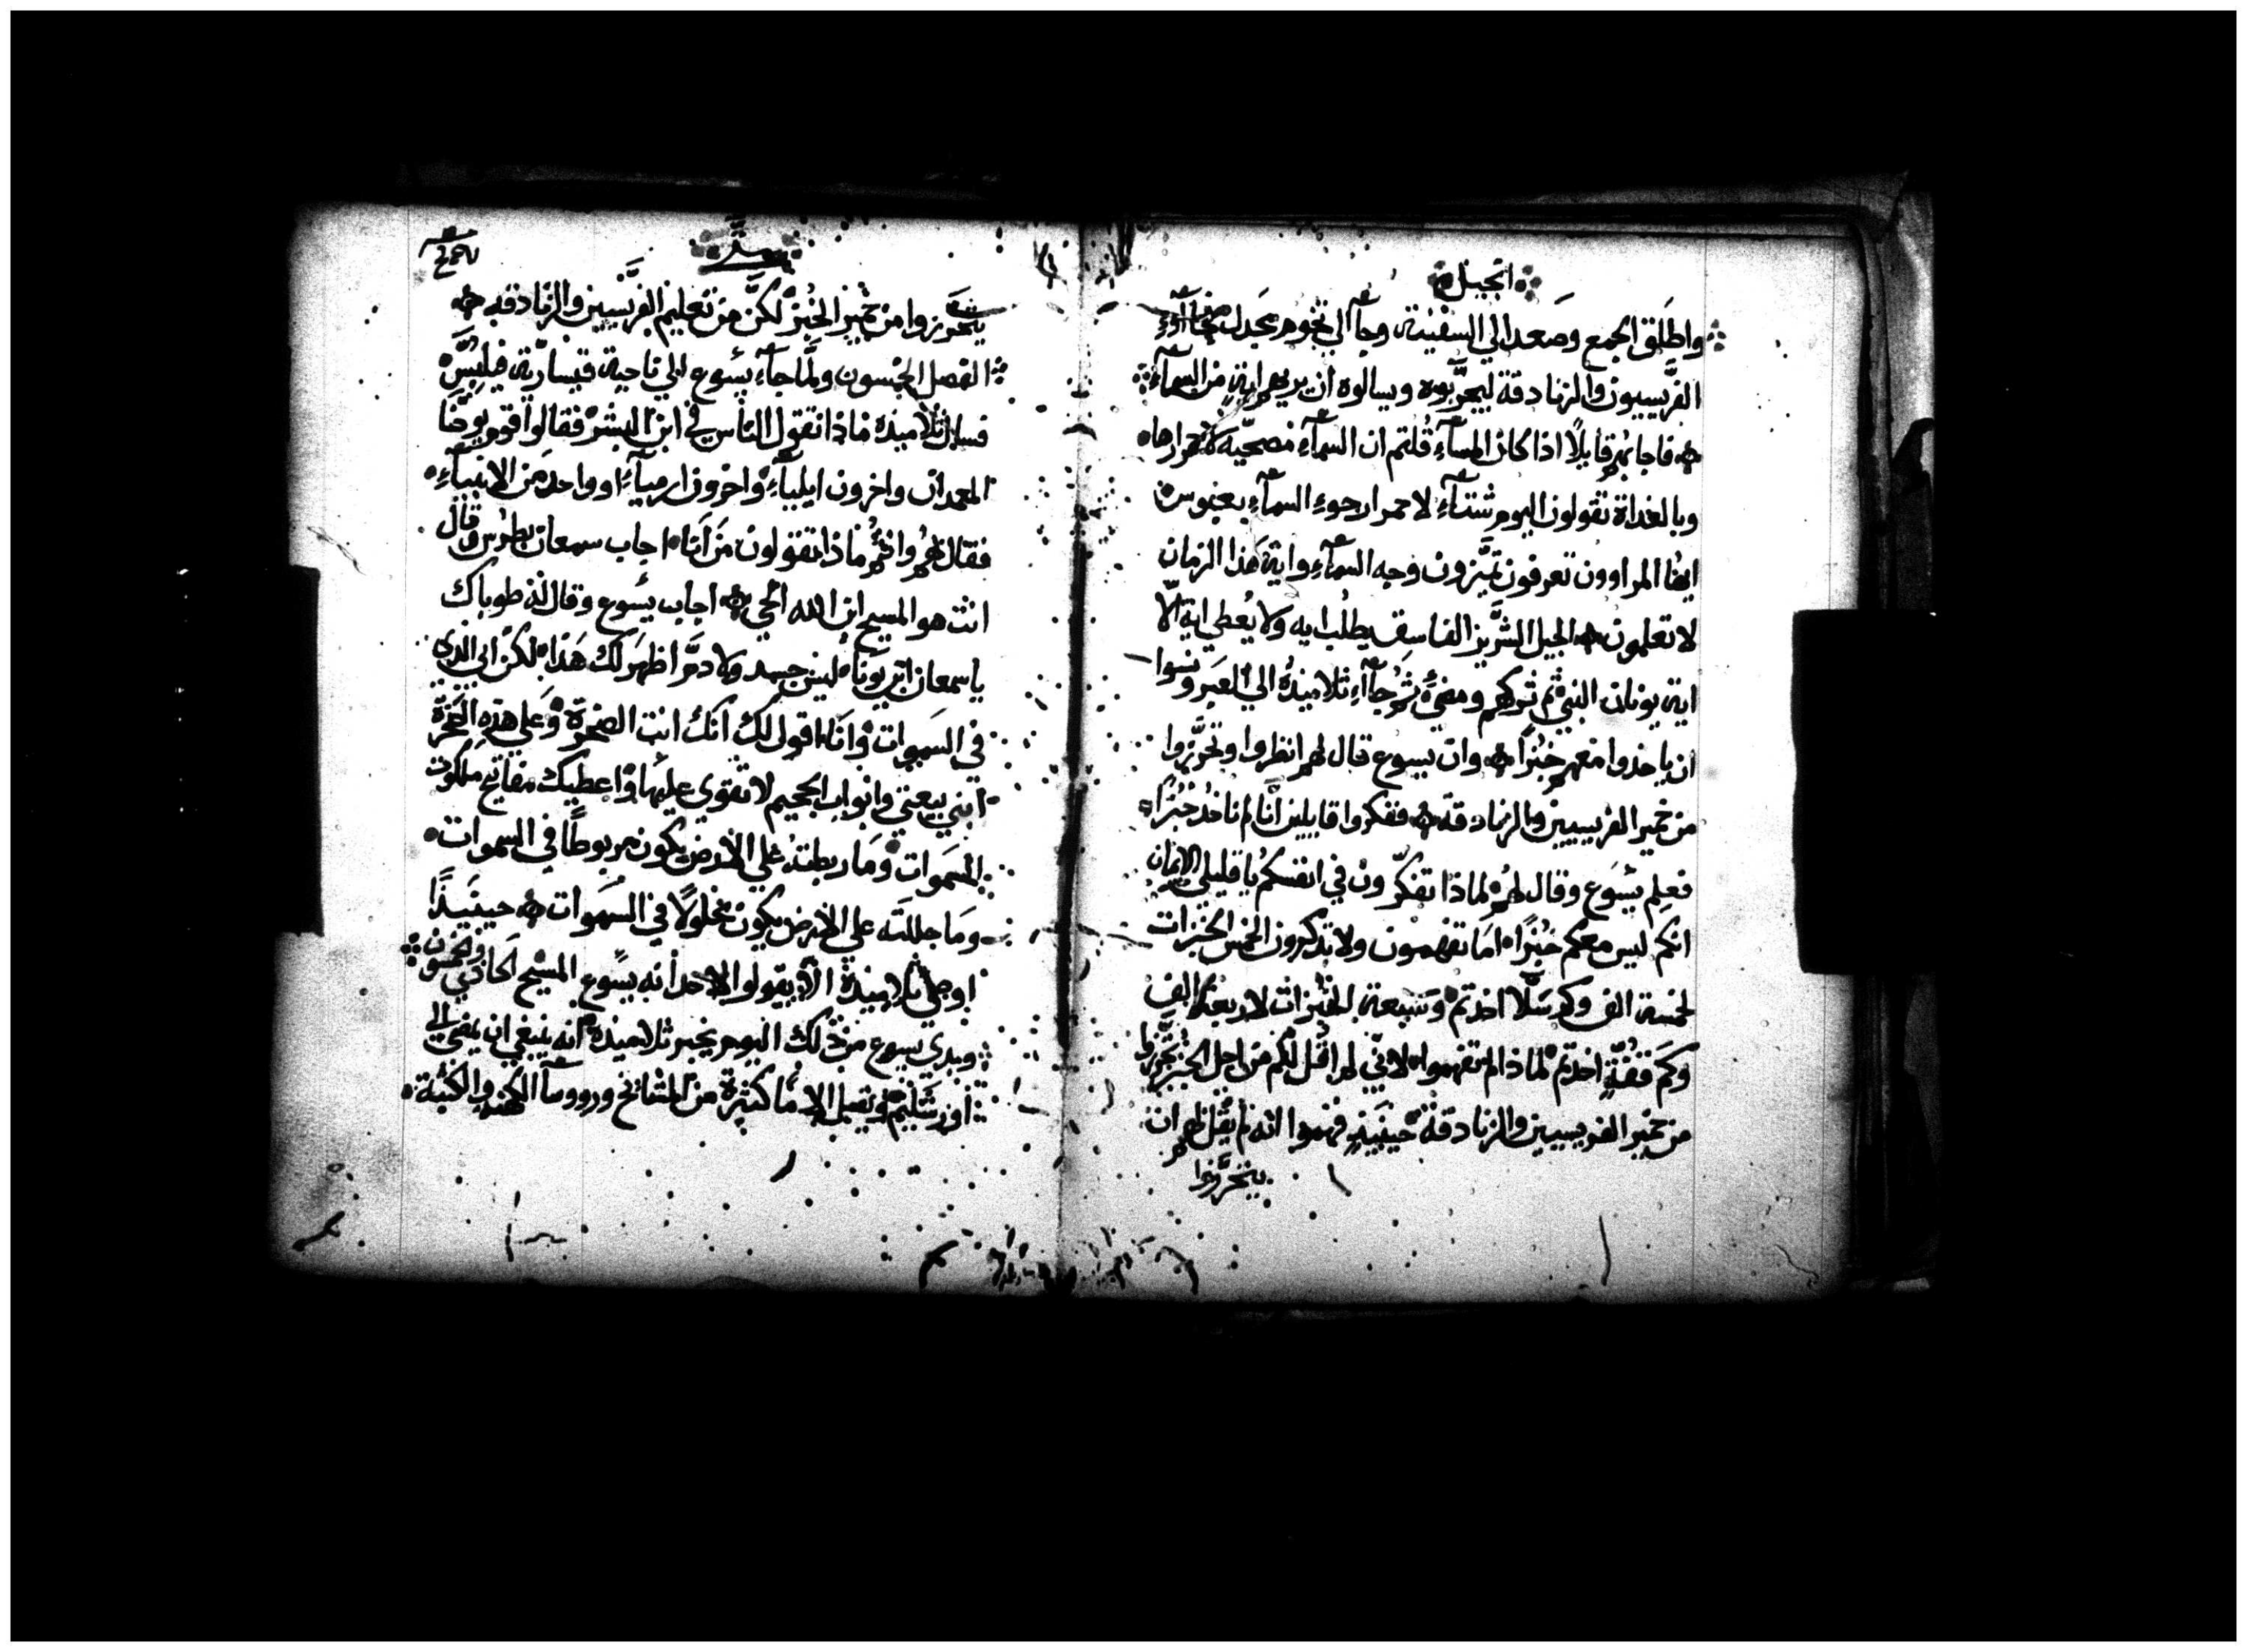 انجيل
واطلق الجمع وصعد الي السفينة وجآ الي تخوم مجدل فجآؤء
الفريسيون والزنادقة ليجربوه وسالوه ان يريهم اية من السمآء
فاجابهم قايلًا اذا كان المسآء قلتم ان السمآء مصحيّه لاحمرارها
وبالغداة تقولون اليوم شتآء لاحمرار جوء السمآء بعبوس
ايها المراوون تعرفون تميّزون وجه السمآء واية هذا الزمان
لا تعلمون الجيل الشرّير الفاسق يطلب ايه ولا يُعطي اية الّا
اية يونان النبي ثم تركهم ومضي ثم جآء تلاميذه الي العبر ونسوا
ان ياخدوا معهم خبزًا وان يسوع قال لهم انظروا وتحرّزوا
من خمير الفريسيين والزنادقة ففكروا قايلين انّا لم ناخُد خُبزًا
فعلم يسوع وقال لهم لماذا تفكّرون في انفسكم يا قليلي الايمان
انكم ليس معكم خُبزًا اما تفهمون ولا تذكرون الخمس الخبزات
لخمسة الف وكم سَلًّا اخدتم وسبعة الخبزات لاربعة الف
وكَم قفةٍ اخدتم لماذا لم تفهموا لانّي لم اقُل لكم من اجل الخبز تحرّزوا
من خمير الفريسيين والزنادقة حينيَذٍ فهموا انه لم يقل لهم ان
يتحرّزوا
متّي
يتحرّزوا من خمير الخُبز لكن من تعليم الفرّيسيين والزنادقه
الفصل الخمسون ولمّا جآء يسوع الي ناحية قيساريّة فيلبس
فسال تلاميذه ماذا تقول الناس في ابن البشر فقالوا قوم يوحنا
المعمدان واخرون ايليآء واخرون ارميآء او واحد من الانبيآء
فقال لهم وانتم ماذا تقولون من أنا اجاب سمعان بطرس وقال
انت هو المسيح ابن الله الحي اجاب يسوع وقال له طوباك
يا سمعان ابن يونا ليس جسد ولا دم اظهر لك هذا لكن ابي الذي
في السموات وأنا اقول لك انك انت الصخرة وعلي هذه الصخرة
ابني بيعتي وابواب الجحيم لا تقوي عليها واعطيك مفاتيح ملكوت
السموات وما ربطته علي الارض يكون مربوطًا في السموات
وما حللته علي الارض يكون محلولًا في السموات حينيَذًا
اوصي تلاميذه الّا يقولوا لاحد انه يسوع المسيح الحادي وخمسون
وبدي يسوع من ذلك اليوم يخبر تلاميذه انه ينبغي ان يمضي الي
اورشليم ويقبل الامًا كثيرة من المشايخ وروسآ الكهنه والكتبة